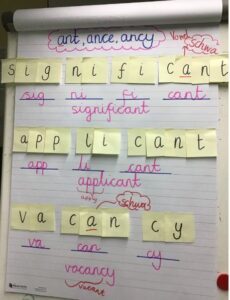 ant, ance, ancy
schwa
s i g n i f i c a n t
sig ni fi cant
significant
a p p l i c a n t
app li cant
applicant
apply
schwa
v a c a n c y
va can cy
vacancy
vacant